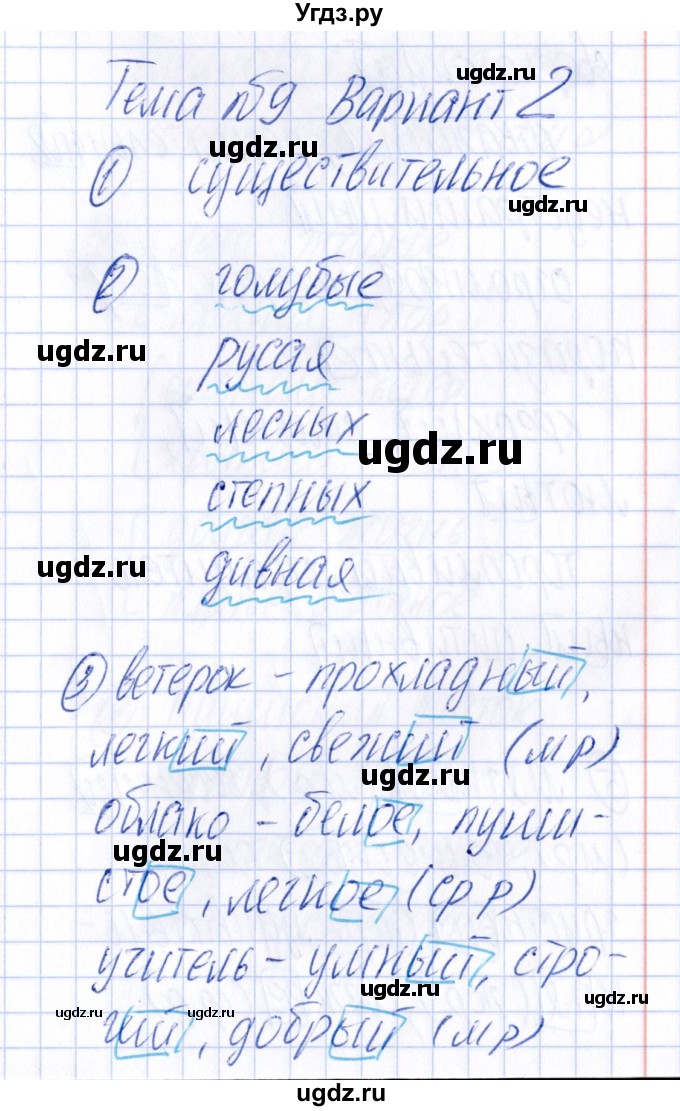 Угдз.ру
ugdz.ru
Тема №59 Вариант 2
ugdz.ru
① существительное
ugdz.ru
② голубые
ugdz.ru
русая
лесных
ugdz.ru
степных
ugdz.ru
дивная
③ ветерок - прохладный,
легкий, свежий (м р)
ugdz.ru
облако - белое, пуши-
ugdz.ru
стое, легкое (ср р)
учитель - умный, стро-
ugdz.ru
ugdz.ru
ugdz.ru
ugdz.ru
гий, добрый (м р)
ugdz.ru